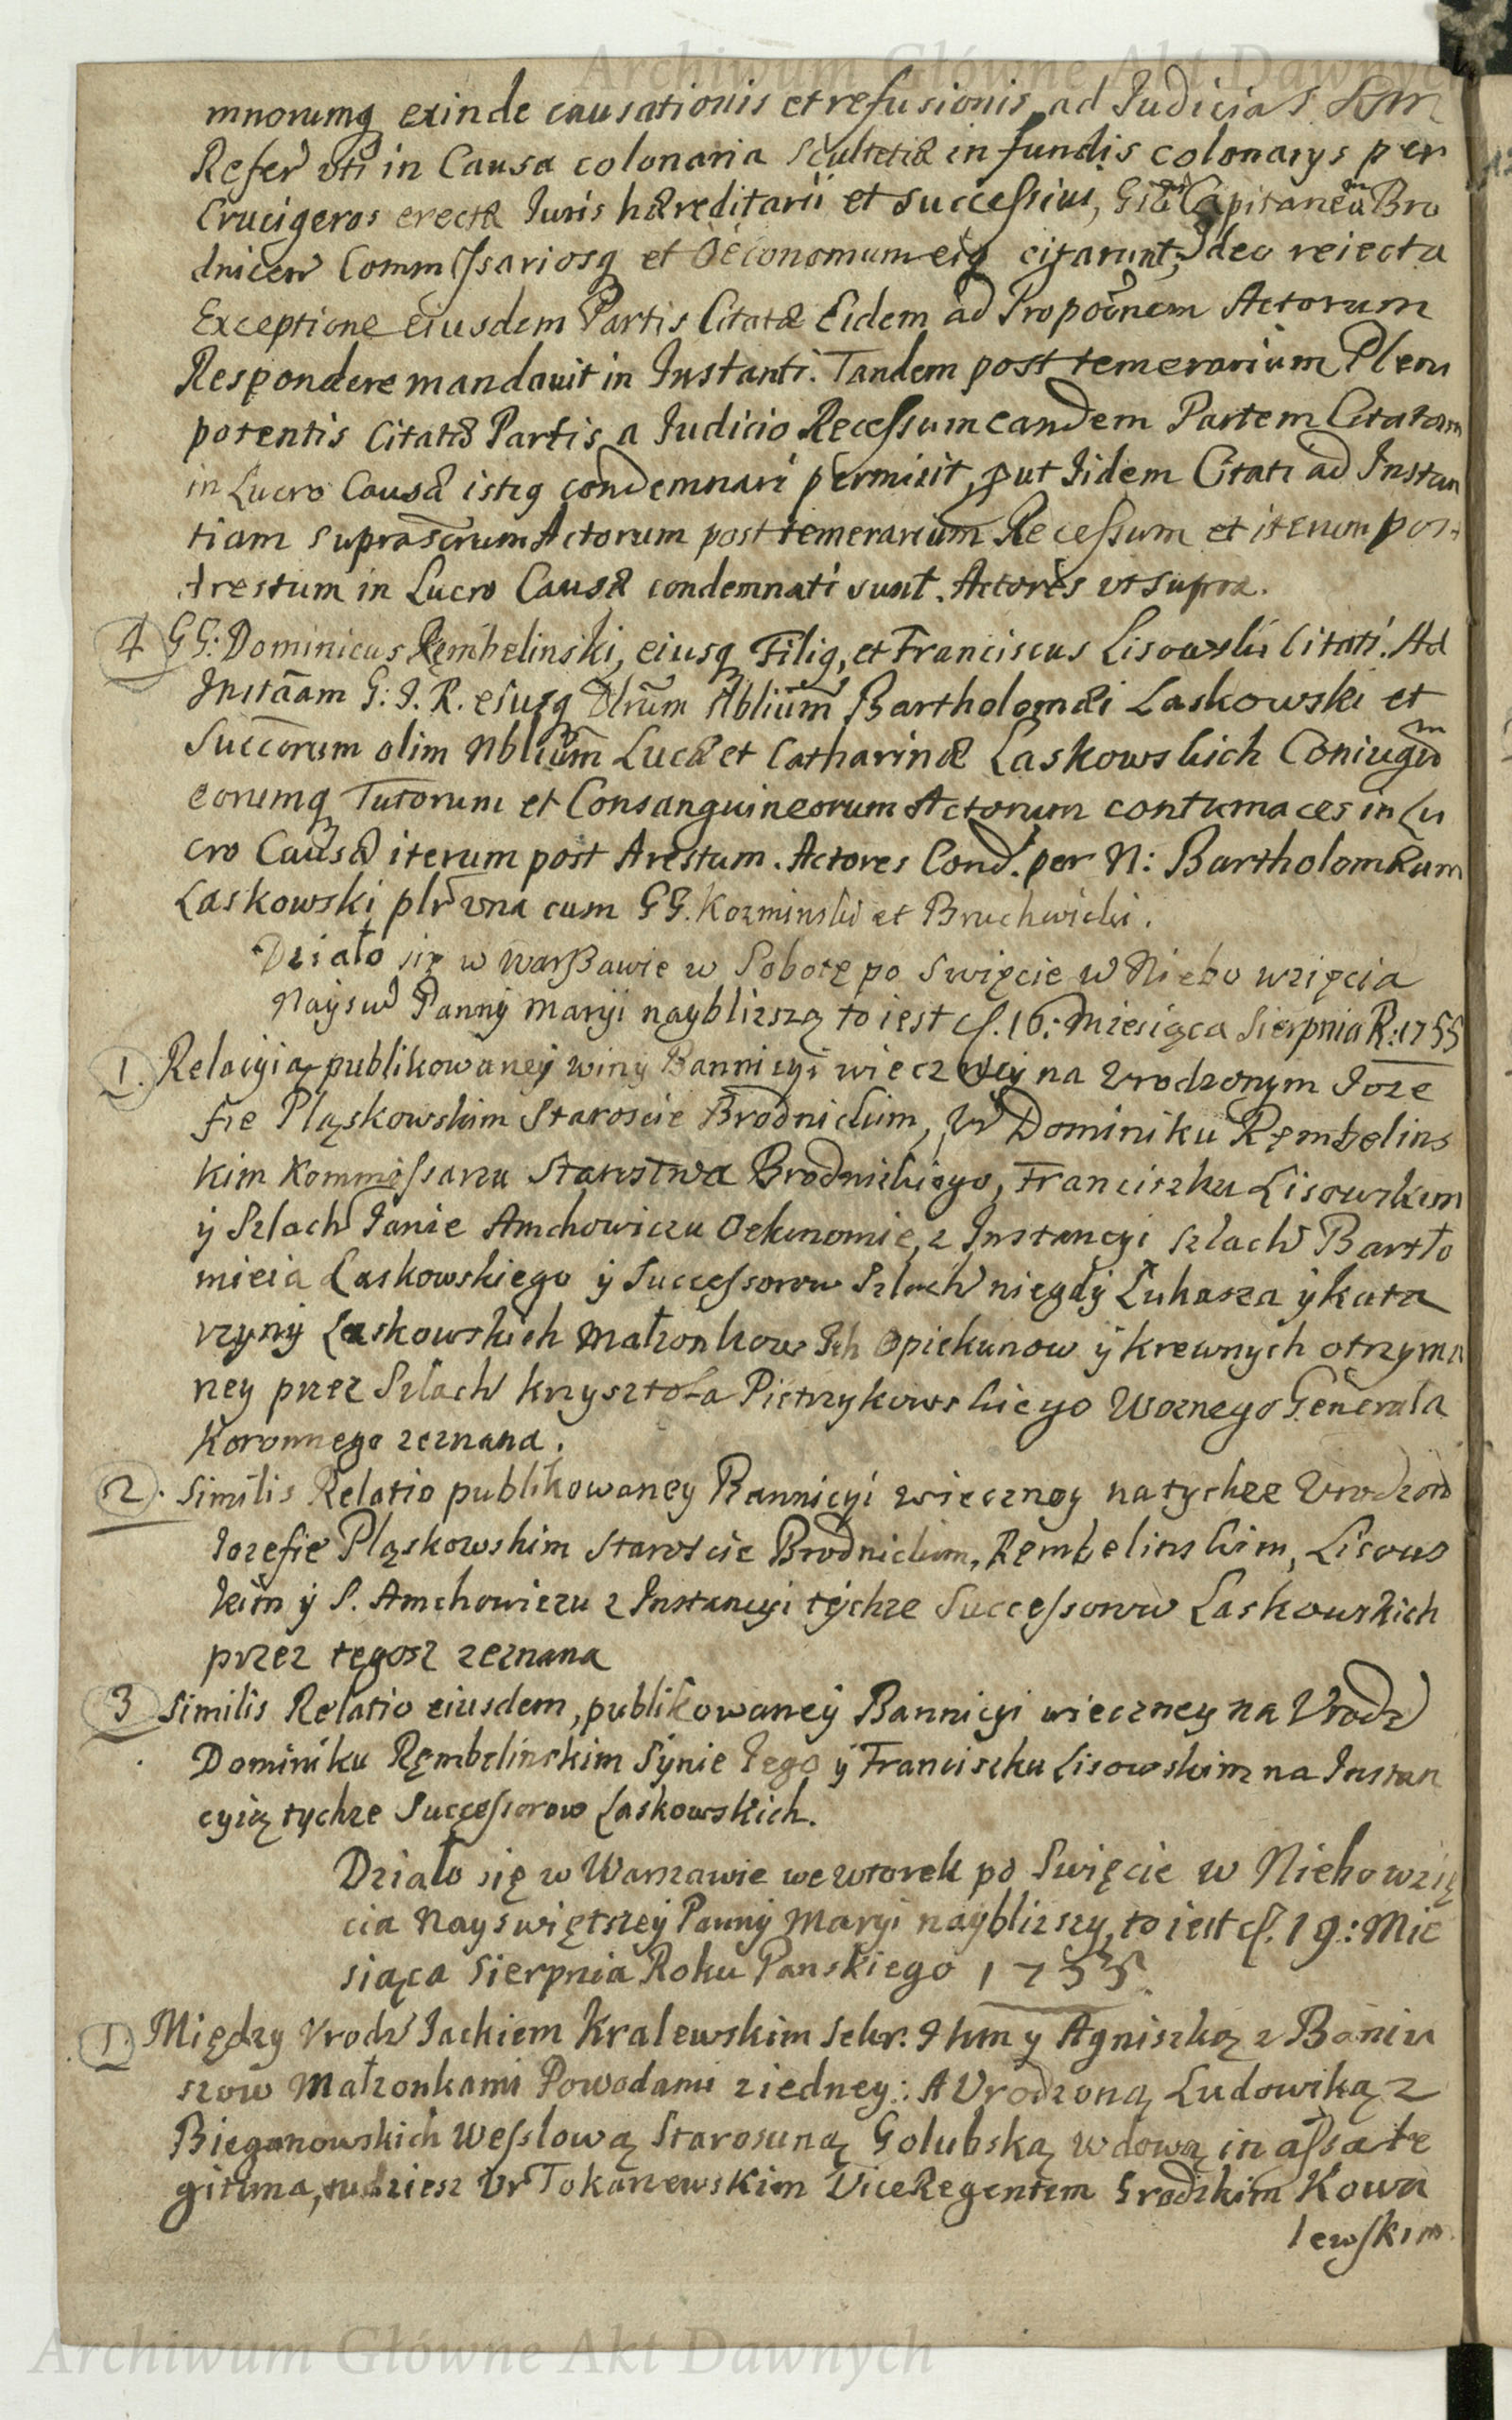 Archiwum Główne Akt Dawnych
mnorumq exinde causationis et refusionis ad Judicia S. R.
Refer uti in Causa colonaria Scultetiæ in fundis colonarys per
Crucigeros erectæ Juris hæreditarii et successivi, Capitaneum Bro
dnicen Commissariosq et Oeconomum eiq citarunt; Ideo reiecta
Exceptione eiusdem Partis Citatæ Eidem ad Propoõnem Actorum
Respondere mandavit in Instanti. Tandem post temerarium Pleni
potentis Citatæ Partis a Judicio Recessum eandem Partem Citatam
in Lucro Causæ istiq condemnari permisit, put Iidem Citati ad Instan
tiam suprascrum Actorum post temerarium Recessum et iterum post
Arestum in Lucro Causæ condemnati sunt. Actores ut supra.
4 GG: Dominicus Rembelinski, eiusq Filiq, et Franciscus Lisowski Citati. Ad
Instãam G: I. R. eiusq Nblium Bartholomæi Laskowski et
Succorum olim Nblium Lucæ et Catharinæ Laskowskich Coniugum
eorumq Tutorum et Consanguineorum Actorum contumaces in Lu
cro Causæ iterum post Arestum. Actores Cond. per N: Bartholomæum
Laskowski plr una cum GG. Kozminski et Bruchwicki.
Działo się w Warszawie w Sobotę po Swięcie w Niebo wzięcia
Nayśw Panny Maryi naybliszszą to iest d. 16: Miesiąca Sierpnia R: 1755
1. Relacyia publikowaney winy Bannicyi wieczney na Urodzonym Joze
fie Pląskowskim Staroscie Brodnickim, Ur Dominiku Rembelins
kim Kommissarzu Starstwa Brodnickiego, Franciszku Lisowskim
y Szlach Janie Amchowiczu Oekonomie, z Instancyi Szlach Bartło
mieia Laskowskiego y Successorow Szlach niegdy Łukasza y Kata
rzyny Laskowskich Małzonkow Ich Opiekunow y krewnych otrzyma
ney przez Szlach Krzysztofa Pietrzykowskiego Woznego Generała
Koronnego zeznana.
2. Similis Relatio publikowaney Bannicyi wieczney na tychze Urodzon
Jozefie Pląskowskim Staroscie Brodnickim, Rembelinskim, Lisows
kim y S. Amchowiczu z Instancyi tychze Successorow Laskowskich
przez tegosz zeznana
3 Similis Relatio eiusdem, publikowaney Bannicyi wieczney na Urodz
Dominiku Rembelinskim Synie Jego y Franciszku Lisowskim na Instan
cyią tychze Successorow Laskowskich.
Działo się w Warszawie we wtorek po Swięcie w Niebowzię
cia Nayswiętszey Panny Maryi naybliszszy, to iest d. 19: Mie
siąca Sierpnia Roku Panskiego 1755.
1. Między Urodz Jackiem Kralewskim y Agniszką z Baniu
szow Małzonkami Powodami z iedney: A Urodzoną Ludowiką z
Bieganowskich Wesslową Starosciną Golubską wdową in assa te
gitima, tudziesz Ur Tokarzewskim ViceRegentem Grodzkim Kowa
lewskim
Archiwum Główne Akt Dawnych